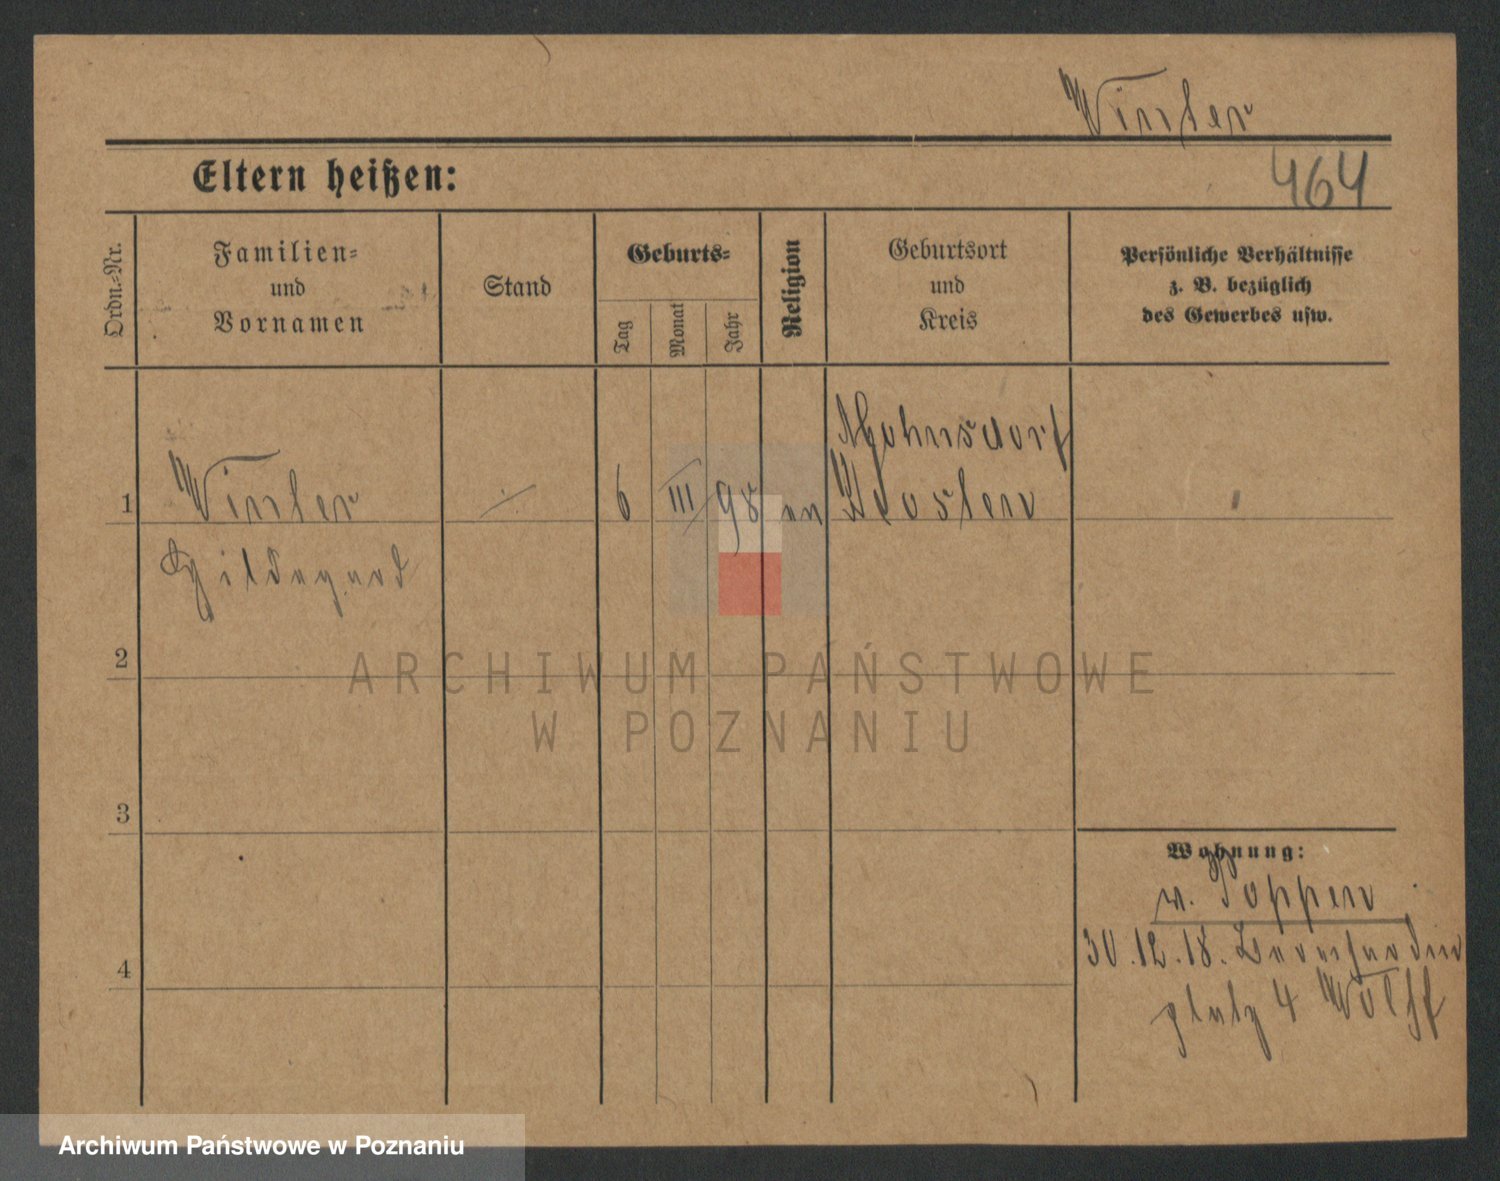 Winter
464
Eltern heißen:
Ordn.-Nr.
Familien-
und
Vornamen
Stand
Geburts-
Tag
Monat
Jahr
Religion
Geburtsort
und
Kreis
Persönliche Verhältnisse
z. B. bezüglich
des Gewerbes usw.
1
Winter
6 III 98
Kosten
Hildegard
2
ARCHIWUM PAŃSTWOWE
W POZNANIU
3
4
Wohnung:
v. Poppen
30.12.18.
platz 4 Wolff
Archiwum Państwowe w Poznaniu